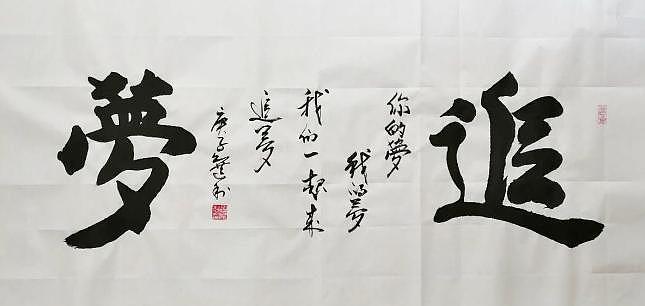 追
你的夢
我的夢
我们一起来
追夢
夢
庚子